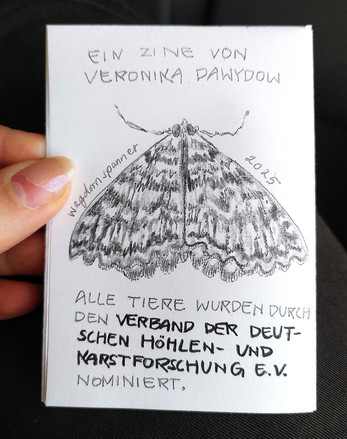 EIN ZINE VON
VERONIKA DAWYDOW
wegdornspanner
2025
ALLE TIERE WURDEN DURCH
DEN VERBAND DER DEUT-
SCHEN HÖHLEN- UND
KARSTFORSCHUNG E.V.
NOMINIERT.